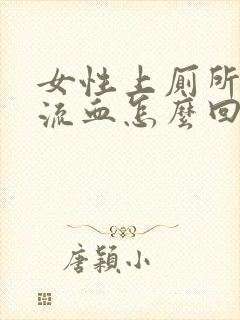 女性上厠所
流血怎麼回
唐穎小